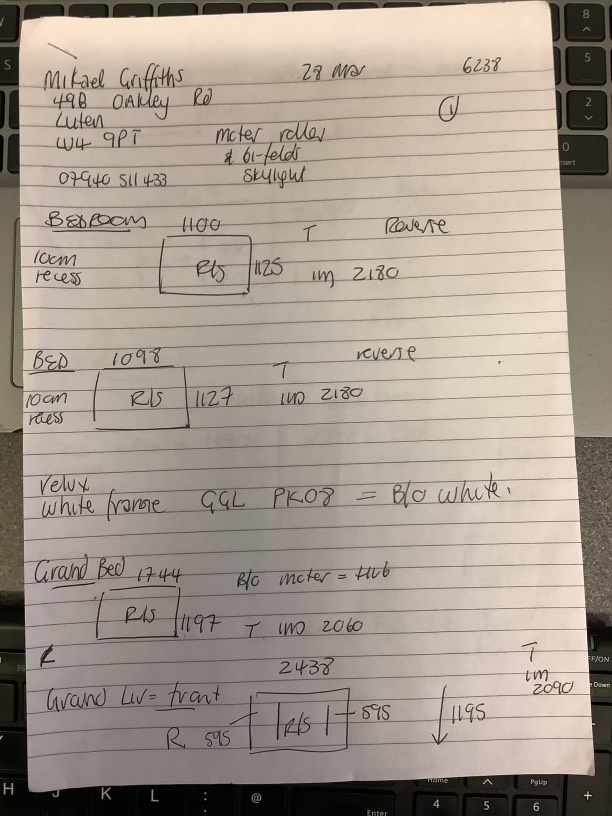 Mikael Griffiths 28 Mar 6238
49B OAkley Rd
Luten 1
LU4 9PT moter roller
& bi-folds
07940 511433 Skylight
BEDROOM 1100 T Reverse
10cm recess R/S 1125 IM 2180
BED 1098 T reverse
10cm recess R/S 1127 IMO 2180
Velux
white frame GGL PK08 = B/O white.
Grand Bed 1744 B/O moter = Hub
R/S 1197 T IMO 2060
2438 T
Grand Liv = front IM 2090
R 595 R/S 595 1195
8
5
2
0
H J K L : @ Enter
Home PgUp
4 5 6 +